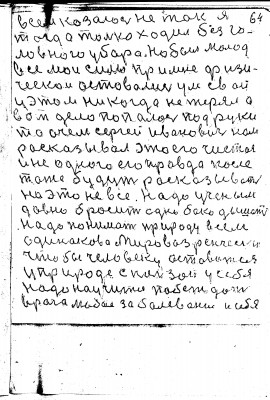 64
всем казалось не так я
тогда только ходил без го-
ловного убора. Но был молод
все мои силы при мне физи-
ческои оставались ум свой
и этом никогда не терял а
вот дело попалось под руки
то о чем сергей иванович нам
рассказывал это его чистая
и не одного его правда после
тоже будут рассказывать
на это не все. Надо ученым
довно бросит одно боко дышат
надо понимат природу всем
одинакова мирова
что бы человеку оставатся
и природе с ползой у себя
надо научится побеждат
врага любое заболевание и себя